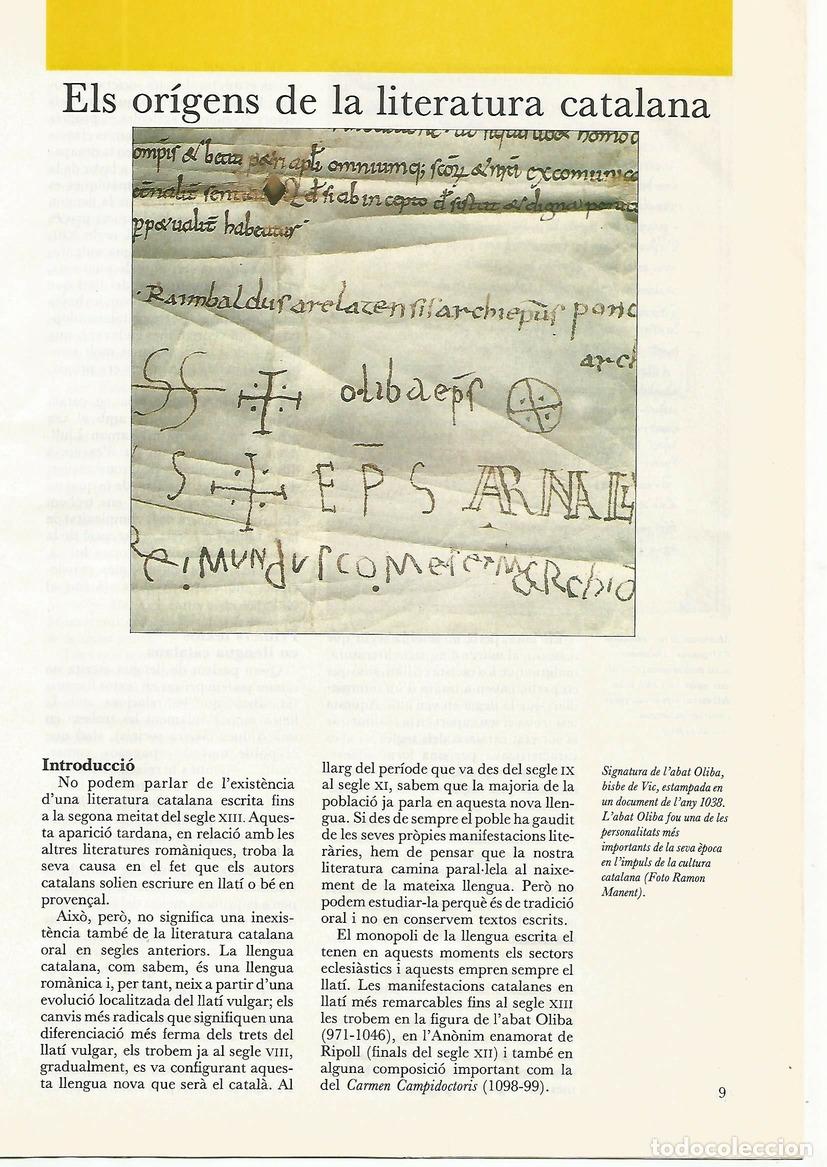 Els orígens de la literatura catalana
omnium
pp&ualit habeatur
Raimbaldus arelatensis archiep̄us ponc
arch
SS oliba ep̄s
S E P̄ S ARNALL
Reimundus comes et marchio
Introducció
No podem parlar de l'existència
d'una literatura catalana escrita fins
a la segona meitat del segle XIII. Aques-
ta aparició tardana, en relació amb les
altres literatures romàniques, troba la
seva causa en el fet que els autors
catalans solien escriure en llatí o bé en
provençal.
Això, però, no significa una inexis-
tència també de la literatura catalana
oral en segles anteriors. La llengua
catalana, com sabem, és una llengua
romànica i, per tant, neix a partir d'una
evolució localitzada del llatí vulgar; els
canvis més radicals que signifiquen una
diferenciació més ferma dels trets del
llatí vulgar, els trobem ja al segle VIII,
gradualment, es va configurant aques-
ta llengua nova que serà el català. Al
llarg del període que va des del segle IX
al segle XI, sabem que la majoria de la
població ja parla en aquesta nova llen-
gua. Si des de sempre el poble ha gaudit
de les seves pròpies manifestacions lite-
ràries, hem de pensar que la nostra
literatura camina paral·lela al naixe-
ment de la mateixa llengua. Però no
podem estudiar-la perquè és de tradició
oral i no en conservem textos escrits.
El monopoli de la llengua escrita el
tenen en aquests moments els sectors
eclesiàstics i aquests empren sempre el
llatí. Les manifestacions catalanes en
llatí més remarcables fins al segle XIII
les trobem en la figura de l'abat Oliba
(971-1046), en l'Anònim enamorat de
Ripoll (finals del segle XII) i també en
alguna composició important com la
del Carmen Campidoctoris (1098-99).
Signatura de l'abat Oliba,
bisbe de Vic, estampada en
un document de l'any 1038.
L'abat Oliba fou una de les
personalitats més
importants de la seva època
en l'impuls de la cultura
catalana (Foto Ramon
Manent).
9
todocoleccion